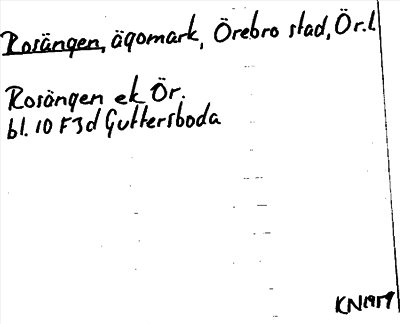 Rosängen, ägomark, Örebro stad, Ör.l
Rosängen ek Ör.
bl. 10 F 3d Guttersboda
KN 1959